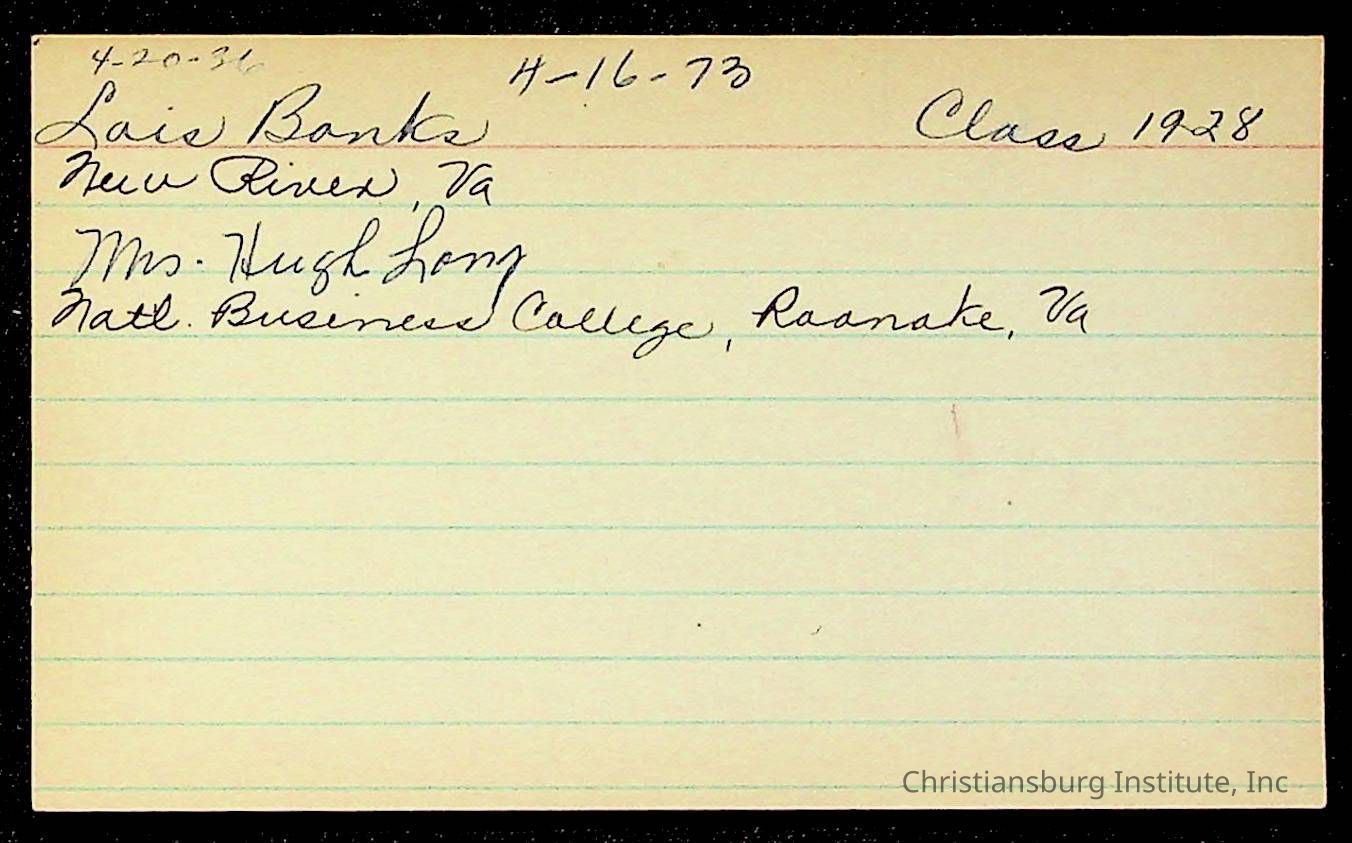 4-20-36
4-16-73
Lois Banks Class 1928
New River, Va
Mrs. Hugh Long
Natl. Business College, Roanoke, Va
Christiansburg Institute, Inc